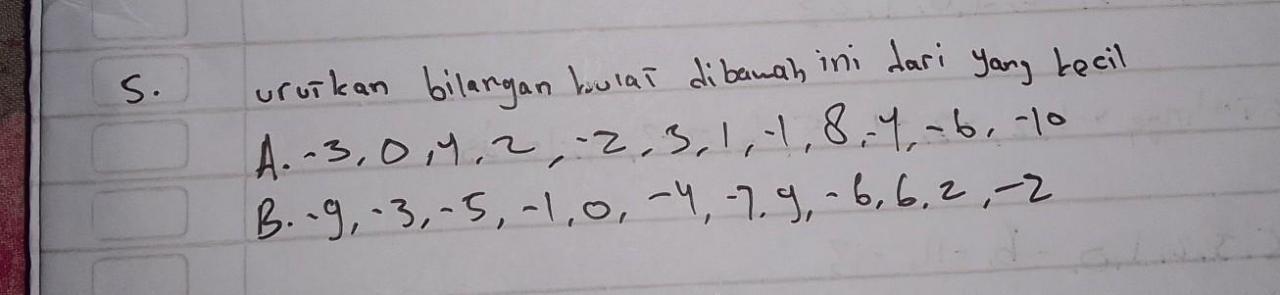 5. urutkan bilangan bulat dibawah ini dari yang kecil
A. -3, 0, 4, 2, -2, 3, 1, -1, 8, -4, -6, -10
B. -9, -3, -5, -1, 0, -4, -7, 9, -6, 6, 2, -2